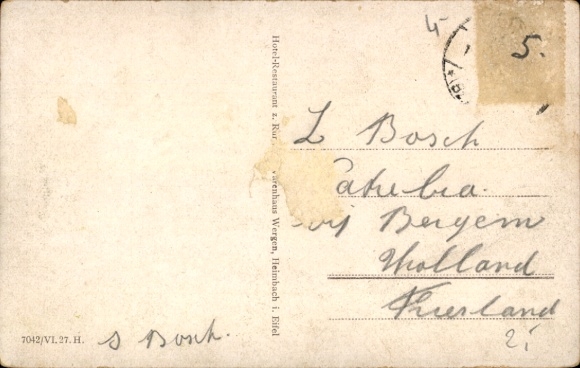 4
5.
Hotel-Restaurant z. Rur Warenhaus Wergen, Heimbach i. Eifel
L Bosch
Bergem
Holland
Friesland
7042/VI. 27. H.
S Bosch.